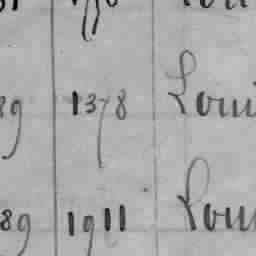 89 1378 Loui
89 1911 Loui